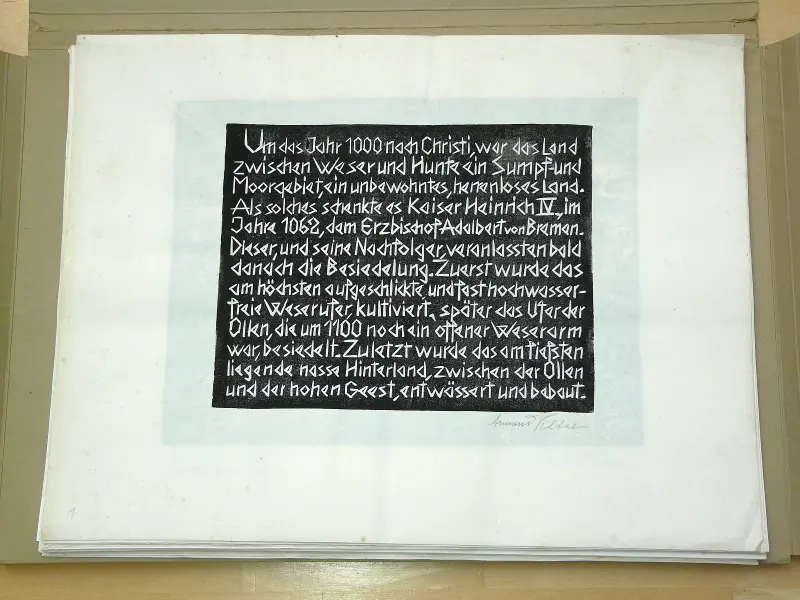 Um das Jahr 1000 nach Christi, war das Land
zwischen Weser und Hunte ein Sumpf und
Moorgebiet, ein unbewohntes, herrenloses Land.
Als solches schenkte es Kaiser Heinrich IV, im
Jahre 1062, dem Erzbischof Adalbert von Bremen.
Dieser, und seine Nachfolger, veranlassten bald
danach die Besiedelung. Zuerst wurde das
am höchsten aufgeschlickte und fast hochwasser-
freie Weserufer, kultiviert, später das Ufer der
Ollen, die um 1100 noch ein offener Weserarm
war, besiedelt. Zuletzt wurde das am tiefsten
liegende nasse Hinterland, zwischen der Ollen
und der hohen Geest, entwässert und bebaut.
1